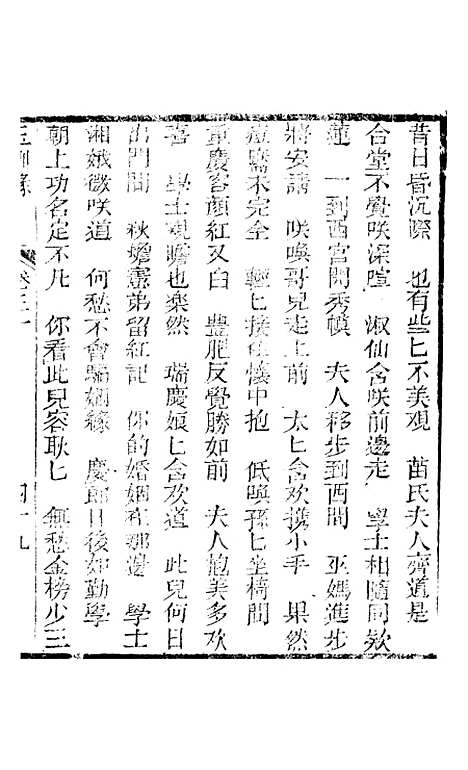 昔日昏沉際 也有些匕不美觀 苗氏夫人齊道是
合堂不覺咲深暄 淑仙含咲前邊走 學士相隨同欵
蓮 一到西宮問秀幙 夫人移步到西間 巫媽進步
將安請 咲喚哥兒走上前 太匕含欢携小手 果然
痘靨不完全 輕匕接在懷中抱 低喚孫匕坐椅間
重慶容顏紅又白 豐肥反覺勝如前 夫人抱美多欢
喜 學士觀瞻也樂然 瑞慶娘匕含欢道 此兒何日
出門間 秋蟾憲弟留紅記 你的婚姻在那邊 學士
湘娥微咲道 何愁不會騙姻緣 慶郎日後如勤學
朝上功名定不凡 你看此兒容耿匕 無愁金榜少三
玉釧緣 卷之三十 四十九